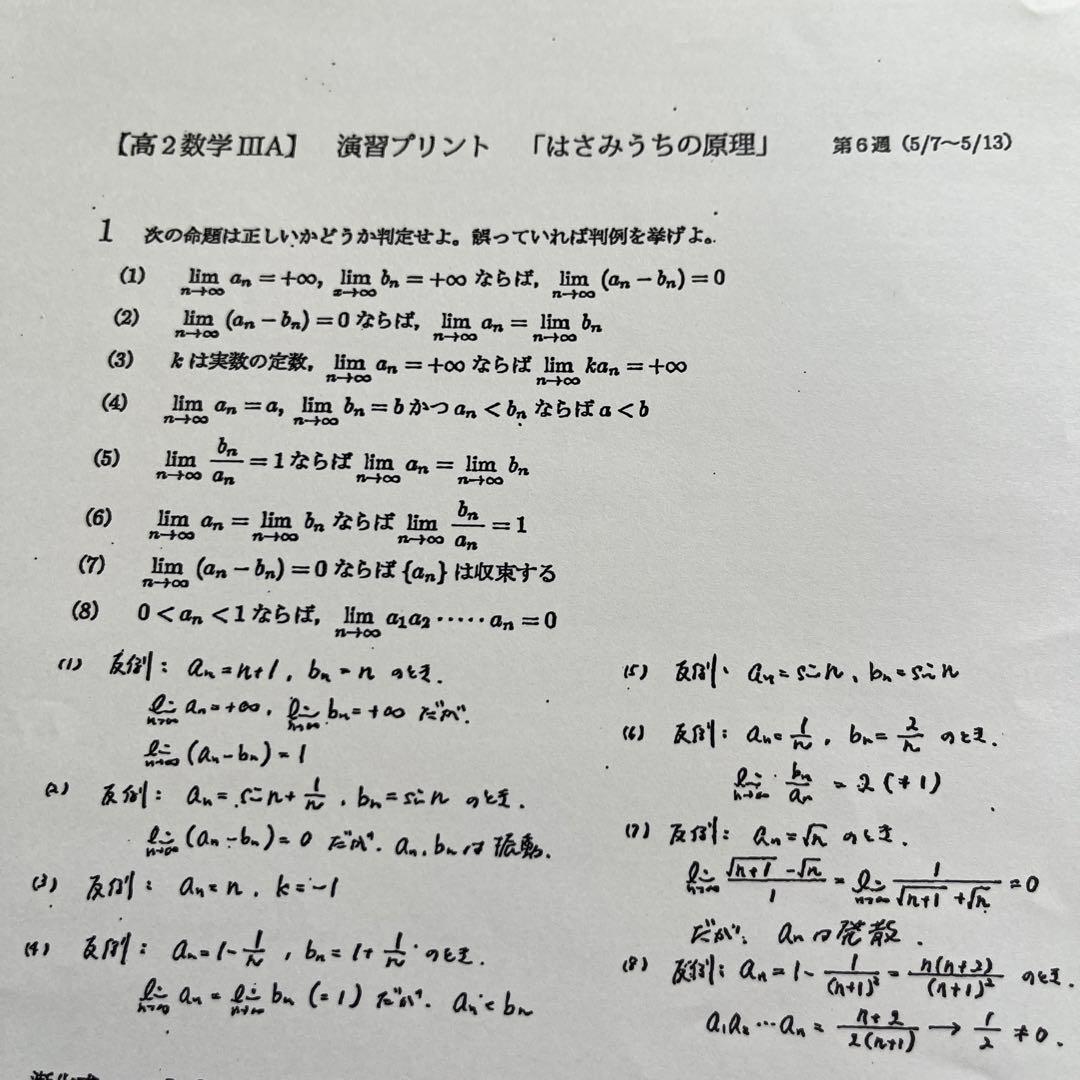 【高2数学ⅢA】 演習プリント 「はさみうちの原理」 第6週（5/7～5/13）
1 次の命題は正しいかどうか判定せよ。誤っていれば判例を挙げよ。
(1) lim_{n→∞} a_n = +∞, lim_{x→∞} b_n = +∞ ならば, lim_{n→∞} (a_n − b_n) = 0
(2) lim_{n→∞} (a_n − b_n) = 0 ならば, lim_{n→∞} a_n = lim_{n→∞} b_n
(3) k は実数の定数, lim_{n→∞} a_n = +∞ ならば lim_{n→∞} ka_n = +∞
(4) lim_{n→∞} a_n = a, lim_{n→∞} b_n = b かつ a_n < b_n ならば a < b
(5) lim_{n→∞} b_n/a_n = 1 ならば lim_{n→∞} a_n = lim_{n→∞} b_n
(6) lim_{n→∞} a_n = lim_{n→∞} b_n ならば lim_{n→∞} b_n/a_n = 1
(7) lim_{n→∞} (a_n − b_n) = 0 ならば {a_n} は収束する
(8) 0 < a_n < 1 ならば, lim_{n→∞} a_1a_2 ····· a_n = 0
(1) 反例： a_n = n+1, b_n = n のとき.
lim_{n→∞} a_n = +∞, lim_{n→∞} b_n = +∞ だが.
lim_{n→∞} (a_n − b_n) = 1
(2) 反例： a_n = sin n + 1/n, b_n = sin n のとき.
lim_{n→∞} (a_n − b_n) = 0 だが. a_n, b_n は振動.
(3) 反例： a_n = n, k = −1
(4) 反例： a_n = 1 − 1/n, b_n = 1 + 1/n のとき.
lim_{n→∞} a_n = lim_{n→∞} b_n (= 1) だが. a_n < b_n
(5) 反例. a_n = sin n, b_n = sin n
(6) 反例： a_n = 1/n, b_n = 2/n のとき.
lim_{n→∞} b_n/a_n = 2 (≠ 1)
(7) 反例： a_n = √n のとき.
lim_{n→∞} (√(n+1) − √n)/1 = lim_{n→∞} 1/(√(n+1) + √n) = 0
だが. a_n は発散.
(8) 反例： a_n = 1 − 1/(n+1)² = n(n+2)/(n+1)² のとき.
a_1a_2 ··· a_n = (n+2)/(2(n+1)) → 1/2 ≠ 0.